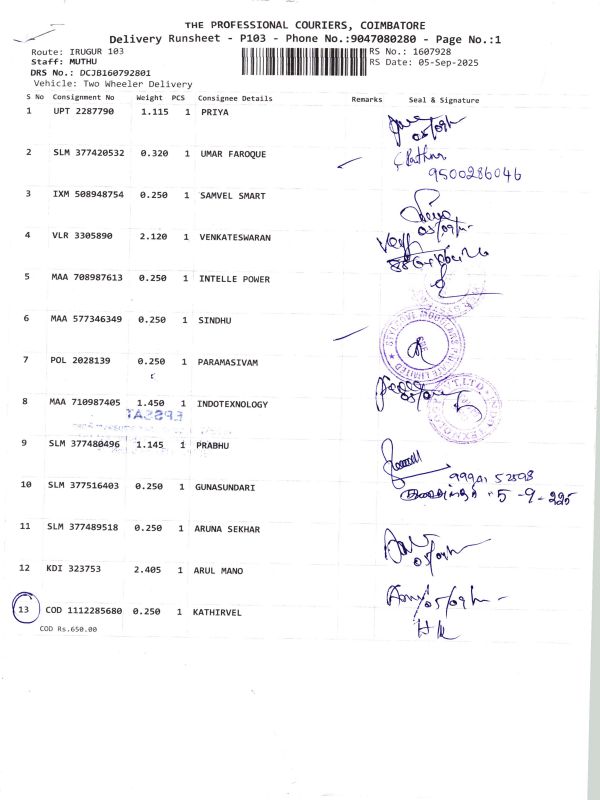 THE PROFESSIONAL COURIERS, COIMBATORE
Delivery Runsheet - P103 - Phone No.:9047080280 - Page No.:1
Route: IRUGUR 103 RS No.: 1607928
Staff: MUTHU RS Date: 05-Sep-2025
DRS No.: DCJB160792801
Vehicle: Two Wheeler Delivery
S No Consignment No Weight PCS Consignee Details Remarks Seal & Signature
1 UPT 2287790 1.115 1 PRIYA
2 SLM 377420532 0.320 1 UMAR FAROQUE
9500286046
3 IXM 508948754 0.250 1 SAMVEL SMART
4 VLR 3305890 2.120 1 VENKATESWARAN
5 MAA 708987613 0.250 1 INTELLE POWER
6 MAA 577346349 0.250 1 SINDHU
7 POL 2028139 0.250 1 PARAMASIVAM
8 MAA 710987405 1.450 1 INDOTEXNOLOGY
9 SLM 377480496 1.145 1 PRABHU
10 SLM 377516403 0.250 1 GUNASUNDARI
11 SLM 377489518 0.250 1 ARUNA SEKHAR
12 KDI 323753 2.405 1 ARUL MANO
13 COD 1112285680 0.250 1 KATHIRVEL
COD Rs.650.00